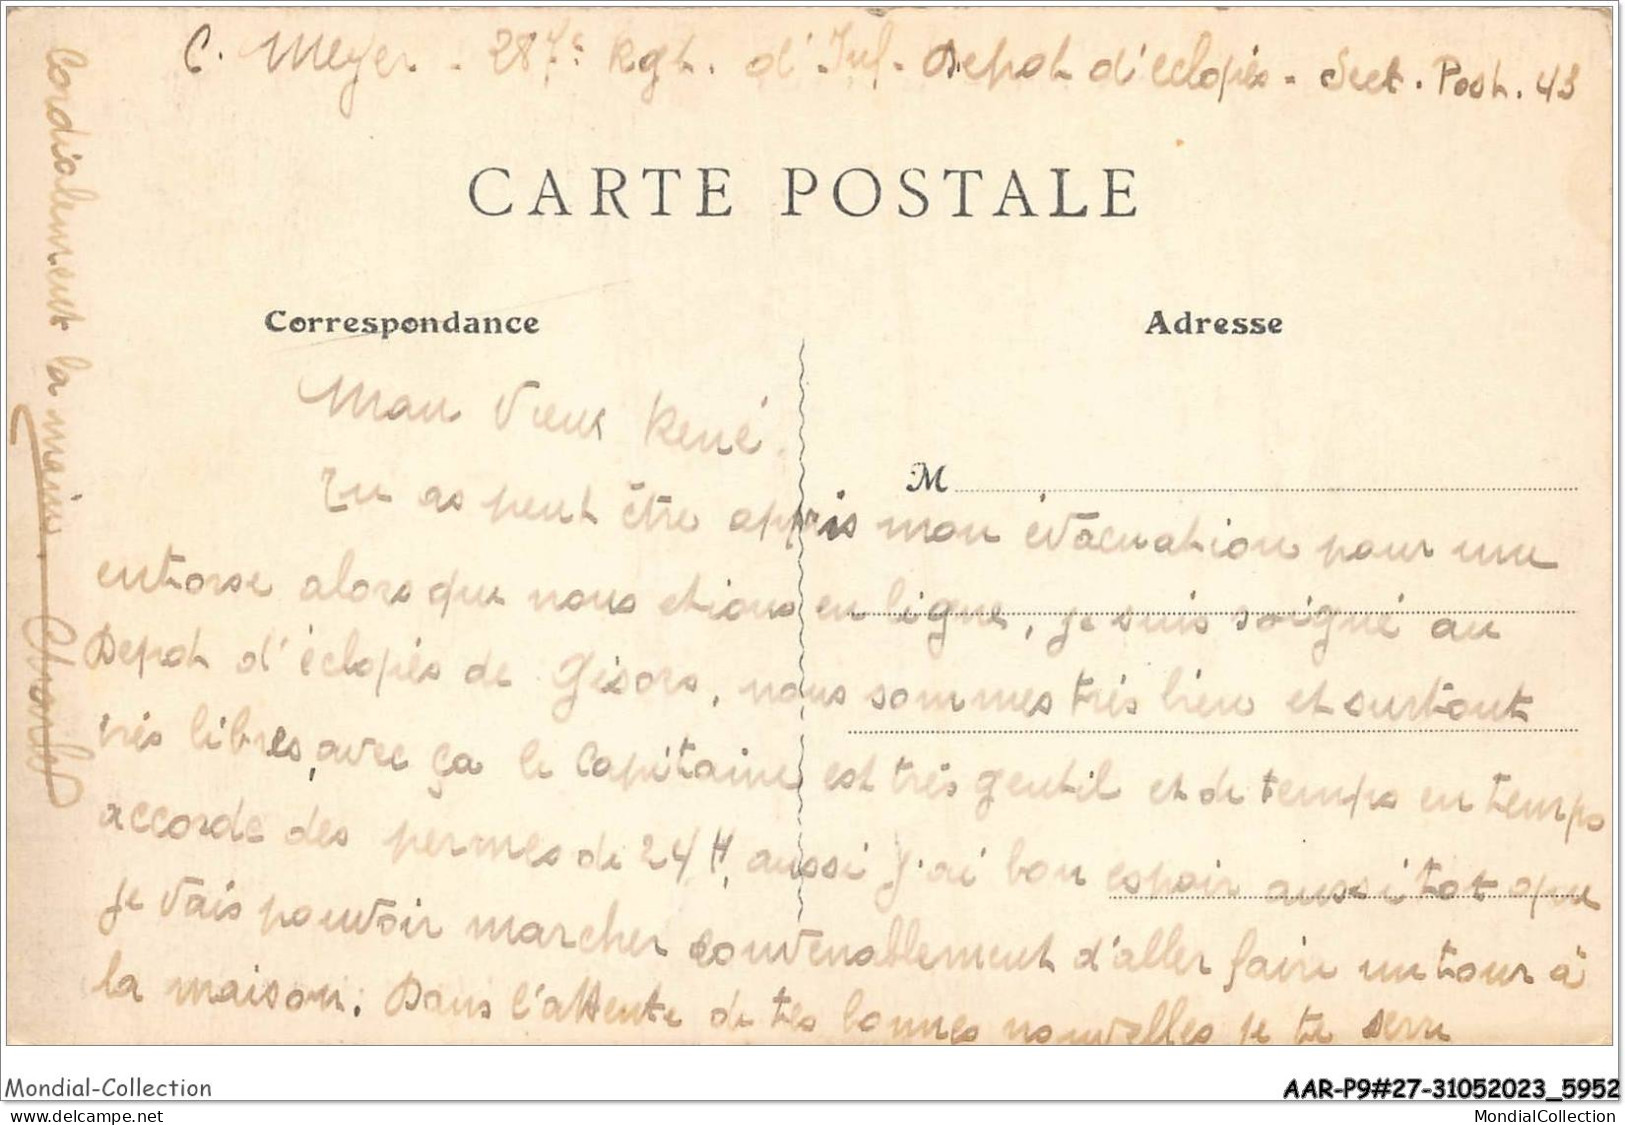 C. Meyer - 287e Rgt. d'Inf - Depot d'éclopés - Sect. Post. 43
CARTE POSTALE
Correspondance
Adresse
Mon Vieux René.
M
Tu as peut être appris mon évacuation pour une
entorse alors que nous etions en ligne, je suis soigné au
Depot d'éclopés de Gisors, nous sommes très bien et surtout
très libres, avec ça le Capitaine est très gentil et de temps en temps
accorde des permes de 24 H, aussi j'ai bon espoir aussitot que
je vais pouvoir marcher convenablement d'aller faire un tour à
la maison. Dans l'attente de tes bonnes nouvelles je te serre
Cordialement la main. Charles
Mondial-Collection
AAR-P9#27-31052023_5952
www.delcampe.net
MondialCollection